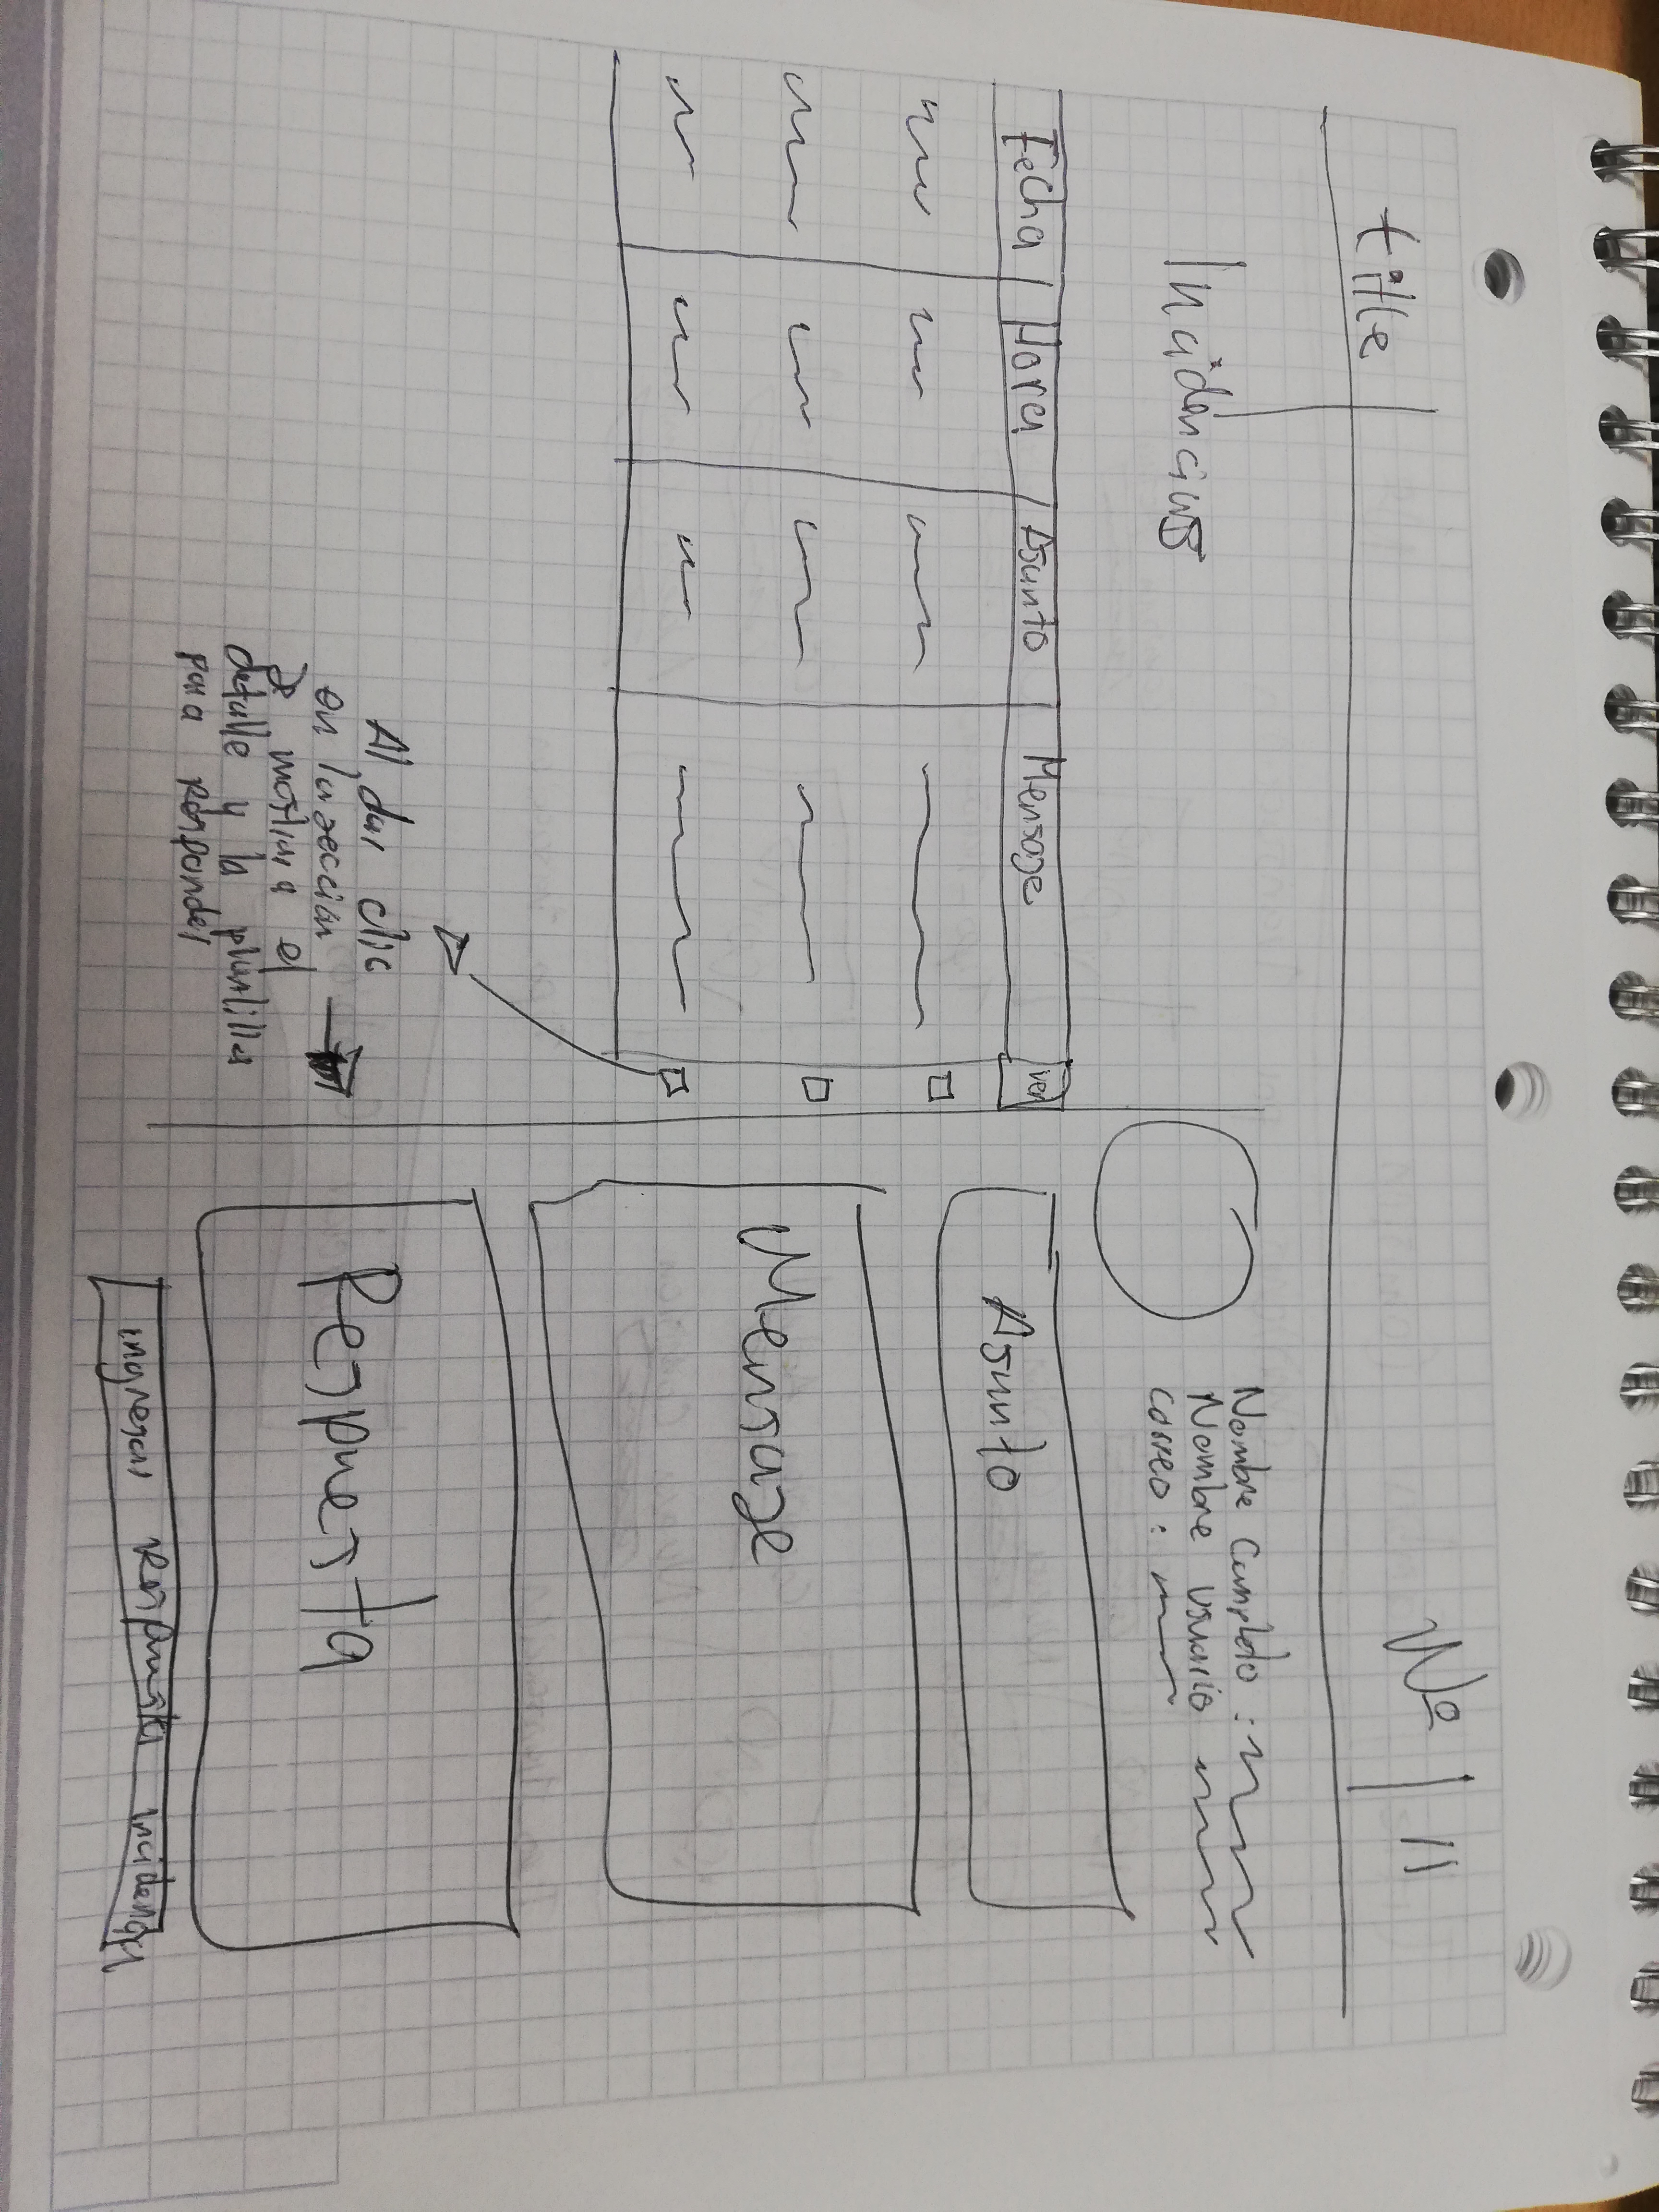 title
Incidencias
Fecha Hora Asunto Mensaje ver
Al dar clic
en la sección
se mostrara el
detalle y la plantilla
para responder
Nombre Completo :
Nombre Usuario
correo :
Asunto
Mensaje
Respuesta
ingresar Respuesta incidencia